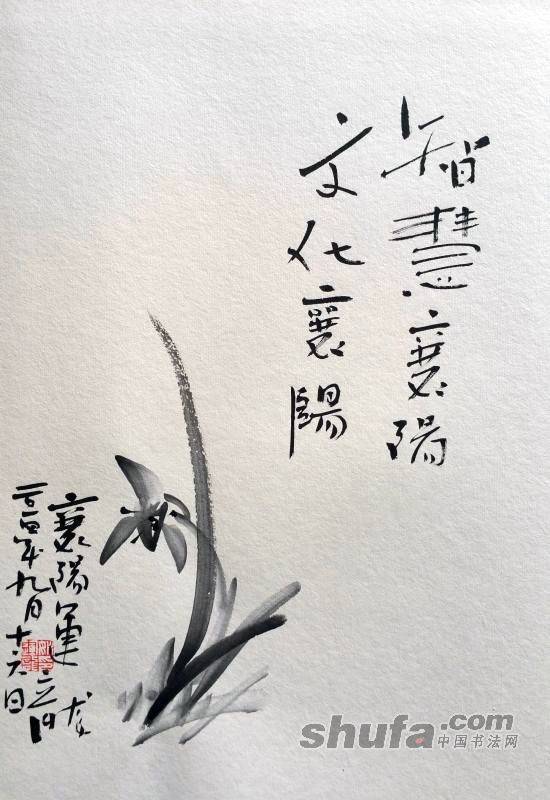 智慧襄陽
文化襄陽
襄陽軍
二〇一四年九月十六日
shufa.com
中国书法网